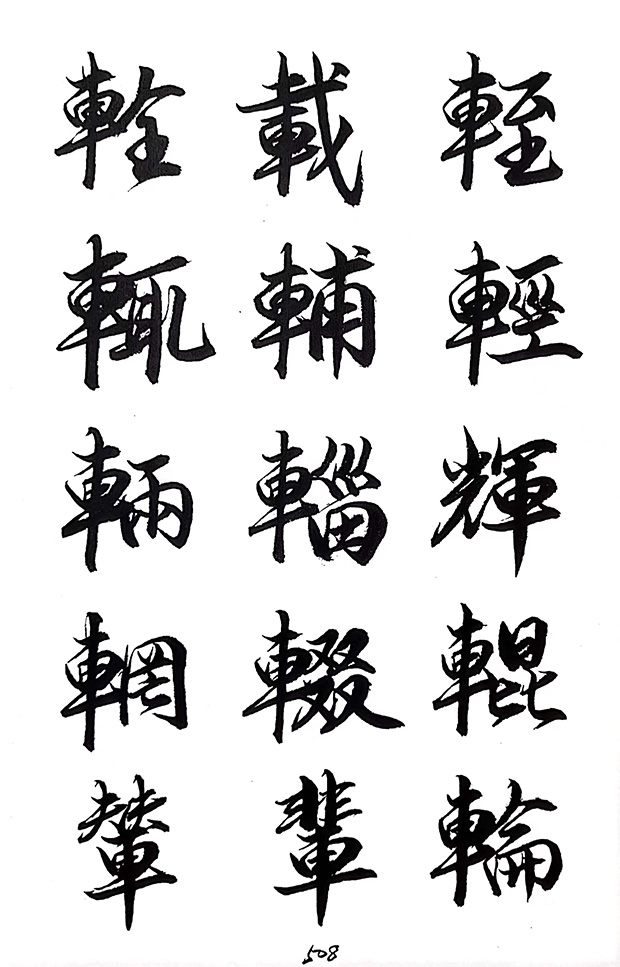 輇載輊
輒輔輕
輛輜輝
輞輟輥
輦輩輪
508